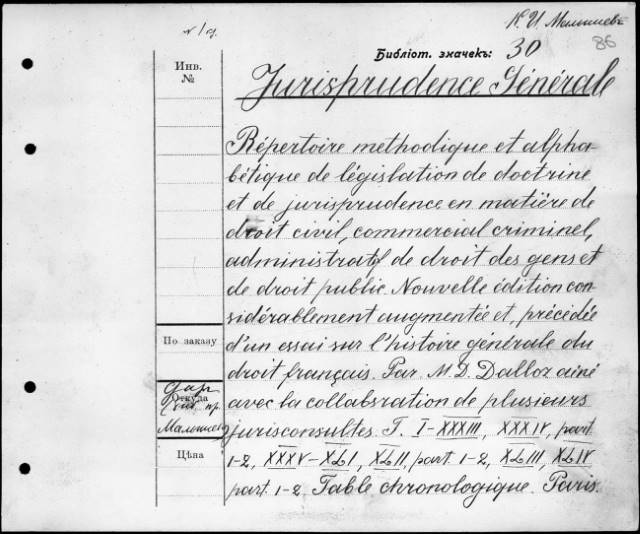 К. И. Малышевъ
86
Библіот. значекъ: 30
Инв.
№
Jurisprudence Générale
Répertoire méthodique et alpha-
bétique de législation de doctrine
et de jurisprudence en matière de
droit civil, commercial criminel,
administratif de droit des gens et
de droit public. Nouvelle édition con-
sidérablement augmentée et, précédée
По заказу
d'un essai sur l'histoire générale du
droit français. Par M. D. Dalloz ainé
Откуда
Даръ
avec la collabsration de plusieurs
Малышева
jurisconsultes. T. I-XXXIII, XXXIV, part.
Цѣна
1-2, XXXV-XLI, XLII, part. 1-2, XLIII, XLIV
part. 1-2. Table chronologique. Paris.